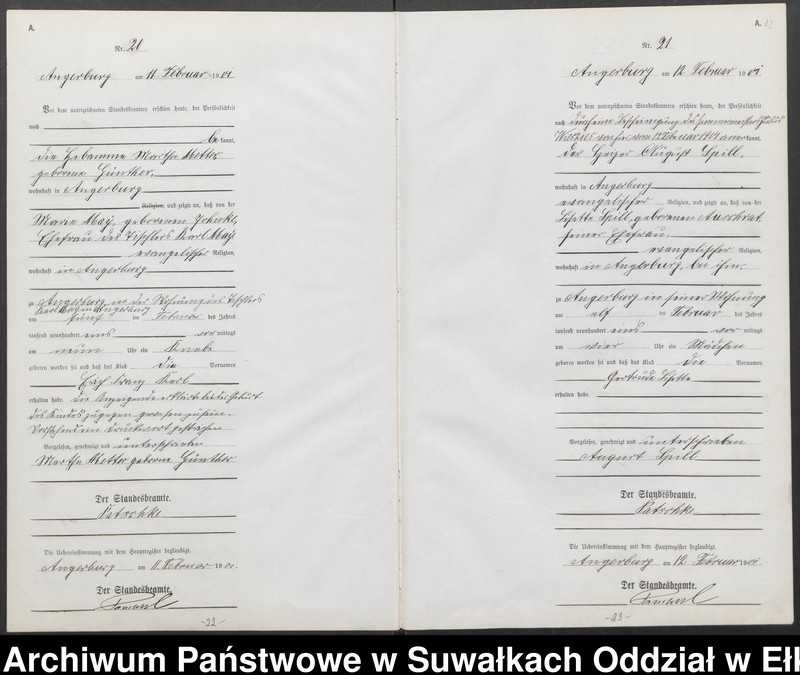 A.
Nr. 20
Angerburg am 11 Februar 1901
Vor dem unterzeichneten Standesbeamten erschien heute, der Persönlichkeit
nach
be kannt,
die Hebamme Martha
geborene Günther,
wohnhaft in Angerburg
Religion, und zeigte an, daß von der
Marie May, geborenen
Ehefrau des Tischlers Karl May
evangelischer Religion,
wohnhaft in Angerburg
zu Angerburg in der Wohnung des Tischlers
Karl May in Angerburg
am fünf ten Februar des Jahres
tausend neunhundert eins vor mittags
um neun Uhr ein Knabe
geboren worden sei und daß das Kind die Vornamen
Erich Franz Karl
erhalten habe. Die Anzeigende erklärte bei der Geburt
des Kindes zugegen gewesen zu sein.
Vorstehend ein Druckwort gestrichen
Vorgelesen, genehmigt und unterschrieben
Martha geborene Günther
Der Standesbeamte.
Patschke
Die Uebereinstimmung mit dem Hauptregister beglaubigt.
Angerburg am 11. Februar 1901.
Der Standesbeamte.
-22-
A. 12
Nr. 21
Angerburg am 12 Februar 1901
Vor dem unterzeichneten Standesbeamten erschien heute, der Persönlichkeit
nach durch eine Bescheinigung des
vom 12 Februar 1901 anerkannt,
der August Spill,
wohnhaft in Angerburg
evangelischer Religion, und zeigte an, daß von der
Lisette Spill, geborenen
seiner Ehefrau,
evangelischer Religion,
wohnhaft in Angerburg, bei ihm,
zu Angerburg in seiner Wohnung
am elf ten Februar des Jahres
tausend neunhundert eins vor mittags
um vier Uhr ein Mädchen
geboren worden sei und daß das Kind die Vornamen
Gertrude Lisette
erhalten habe.
Vorgelesen, genehmigt und unterschrieben
August Spill
Der Standesbeamte.
Patschke
Die Uebereinstimmung mit dem Hauptregister beglaubigt.
Angerburg am 12. Februar 1901
Der Standesbeamte.
-23-
Archiwum Państwowe w Suwałkach Oddział w Ełk